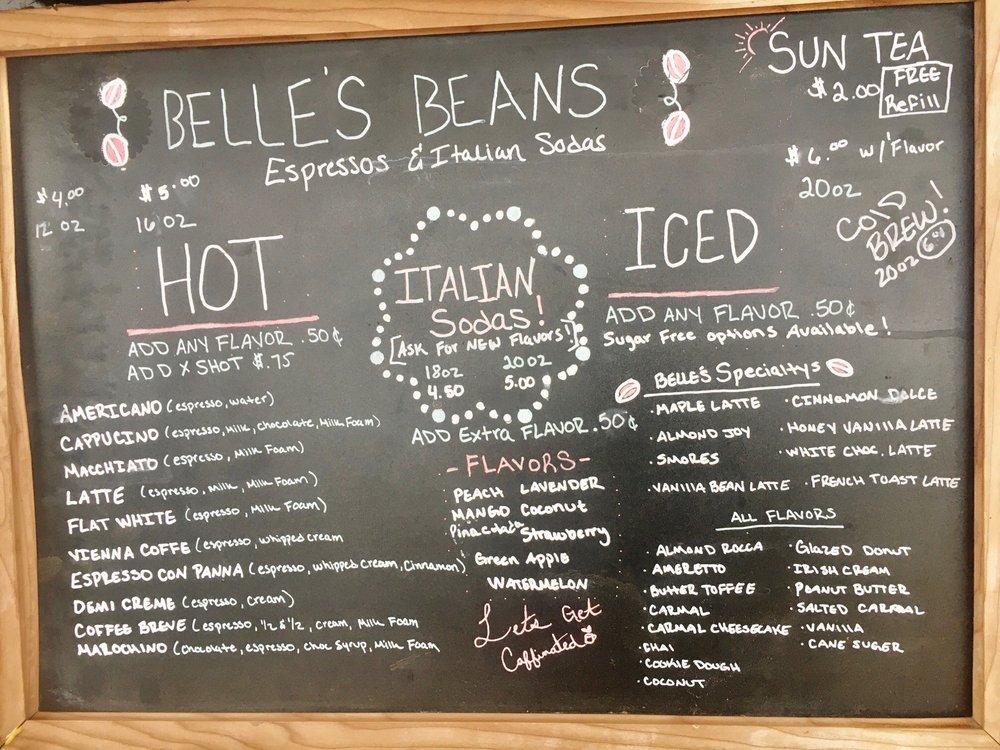 BELLE'S BEANS
Espressos & Italian Sodas
SUN TEA
$2.00 FREE Refill
$6.00 w/Flavor
20oz
COLD BREW!
20oz 6.00
$4.00
12 OZ
$5.00
16 OZ
HOT
ADD ANY FLAVOR .50¢
ADD X SHOT $.75
AMERICANO (espresso, water)
CAPPUCINO (espresso, Milk, chocolate, Milk Foam)
MACCHIATO (espresso, Milk Foam)
LATTE (espresso, Milk, Milk Foam)
FLAT WHITE (espresso, Milk Foam)
VIENNA COFFE (espresso, whipped cream
ESPRESSO CON PANNA (espresso, whipped cream, Cinnamon)
DEMI CREME (espresso, cream)
COFFEE BREVE (espresso, 1/2 & 1/2, cream, Milk Foam
MAROCHINO (chocolate, espresso, choc syrup, Milk Foam
ITALIAN
Sodas!
[ASK FOR NEW Flavors!]
18oz 20oz
4.50 5.00
ADD Extra FLAVOR .50¢
- FLAVORS -
PEACH LAVENDER
MANGO Coconut
Pina colada Strawberry
Green Apple
WATERMELON
Lets Get
Caffinated
ICED
ADD ANY FLAVOR .50¢
Sugar Free options Available!
BELLE'S Specialtys
· MAPLE LATTE
· ALMOND JOY
· SMORES
· VANILLA BEAN LATTE
· CINNAMON DOLCE
· HONEY VANILLA LATTE
· WHITE CHOC. LATTE
· FRENCH TOAST LATTE
ALL FLAVORS
· ALMOND ROCCA
· AMERETTO
· BUTTER TOFFEE
· CARMAL
· CARMAL CHEESECAKE
· CHAI
· COOKIE DOUGH
· COCONUT
· GLAZED DONUT
· IRISH CREAM
· PEANUT BUTTER
· SALTED CARAMAL
· VANILLA
· CANE SUGER